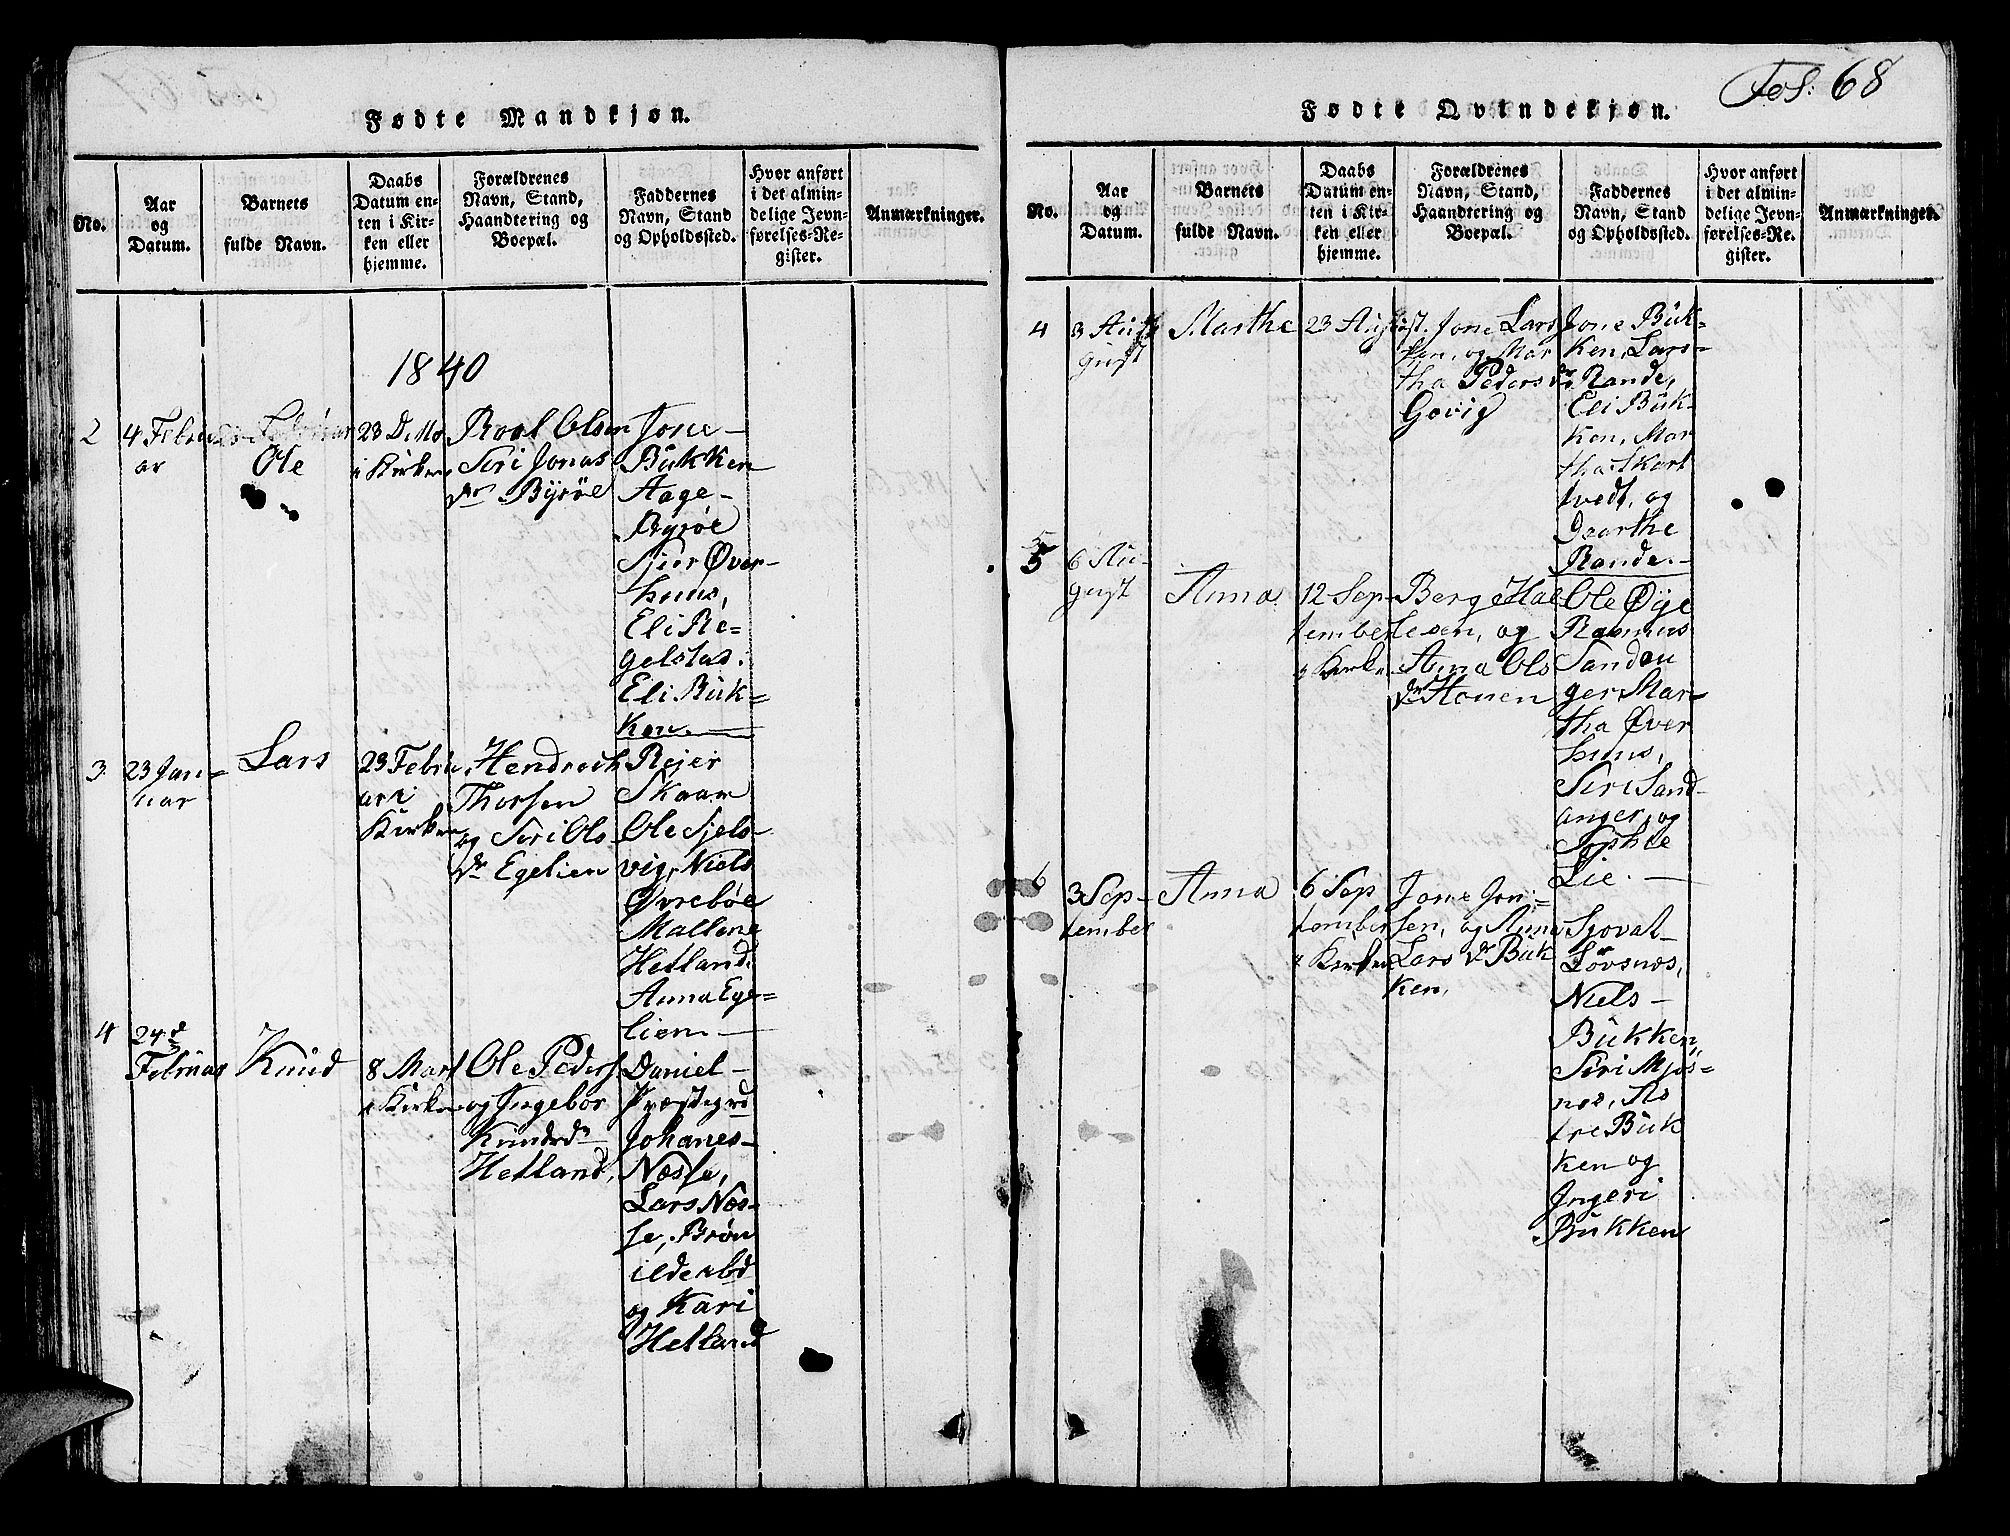 Fødte Mandkjøn.
No.
Aar
og
Datum.
Barnets
fulde Navn.
Daabs
Datum en-
ten i Kir-
ken eller
hjemme.
Forældrenes
Navn, Stand,
Haandtering og
Boepæl.
Faddernes
Navn, Stand
og Opholdssted.
Hvor anført
i det almin-
delige Jevn-
førelses-Re-
gister.
Anmærkninger.
1840
2
4 Febru
ar
Ole
23 D. Mo
i Kirken
Roal Olsen
Siri Jonas
dr Byrøe
Jone
Bukken
Aage
Byröe
Sjur Øver-
huus,
Eli Re-
gelstad.
Eli Buk-
ken
3.
23 Jan-
uar
Lars
23 Febru
ar i
Kirken
Hendrech
Thorsen
og Siri Ols
dr Egelien
Rejer
Skaar
Ole Sjels-
vig, Niels
Øvrebøe
Mallene
Hetland.
Anna Ege-
lien
4
24 d
Februar
Knud
8 Mart
i Kirken
Ole Peders
og Ingebor
Knudsd
Hetland,
Daniel
Præstegrd
Johanes
Næsse,
Lars Næs-
se, Brön
ilde
og Kari
Hetland
Fol: 68
Fødte Qvindekjøn.
No.
Aar
og
Datum.
Barnets
fulde Navn.
Daabs
Datum en-
ten i Kir-
ken eller
hjemme.
Forældrenes
Navn, Stand,
Haandtering og
Boepæl.
Faddernes
Navn, Stand
og Opholdssted.
Hvor anført
i det almin-
delige Jevn-
førelses-Re-
gister.
Anmærkninger.
4
3 Au
gust
Marthe
23 August.
Jone Lars
sen, og Mar
tha Peders dr
Govig
Jone Buk-
ken, Lars
Rande,
Eli Buk-
ken, Mar
tha Skart
tvedt, og
Daarthe
Rande.
5
6 Au-
gust
Anna
12 Sep-
tember
i Kirken
Berge Hal
lesen, og
Anna Ols
dr Houen
Ole Øÿe
Rasmus
Sandan
ger, Mar-
tha Øver
huus,
Siri Sand-
anger, og
Sophie
Lie.
6
3 Sep-
tember
Anna
6 Sep
tember
i Kirken
Jone Jon-
sen, og Anna
Lars dr Buk
ken,
Sjovat
Lövsnæs,
Niels
Bukken,
Siri Mjös-
næs, As
tre Buk
ken og
Ingeri
Bukken